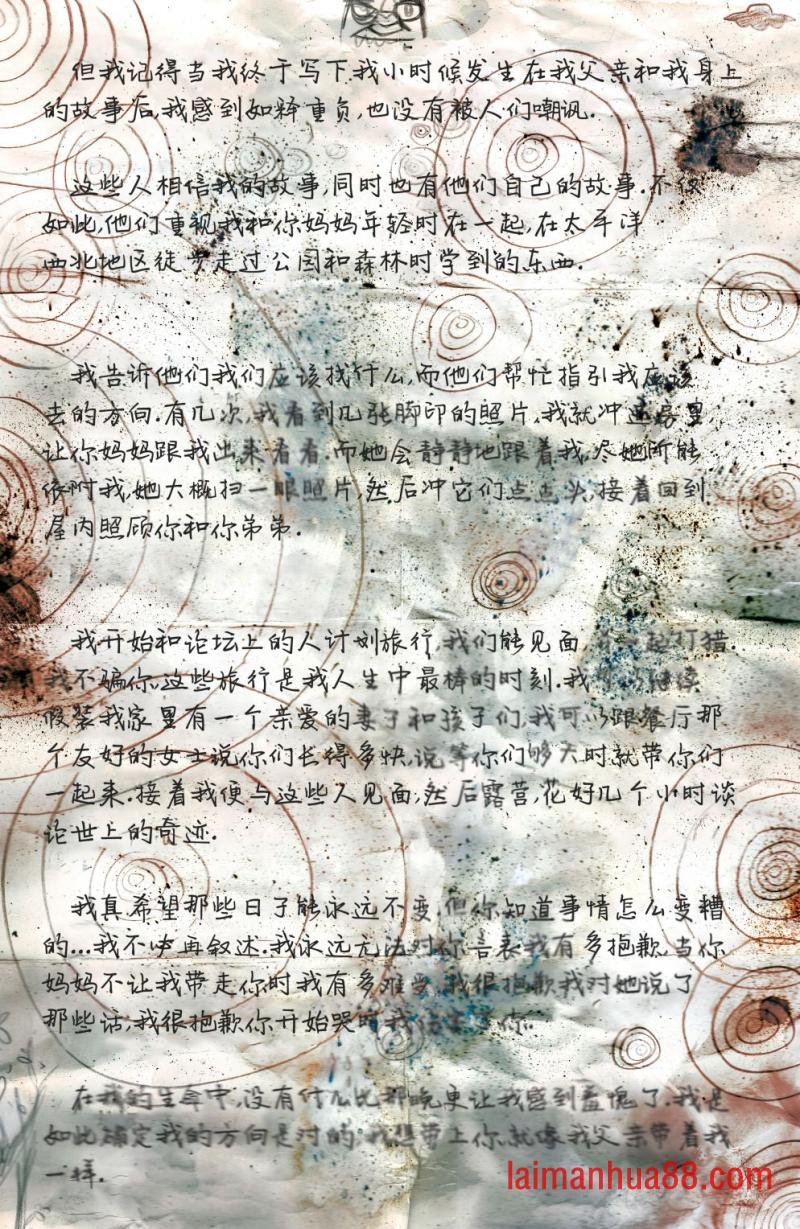 但我记得当我终于写下我小时候发生在我父亲和我身上
的故事后,我感到如释重负,也没有被人们嘲讽.
这些人相信我的故事,同时也有他们自己的故事.不仅
如此,他们重视我和你妈妈年轻时在一起,在太平洋
西北地区徒步走过公园和森林时学到的东西.
我告诉他们我们应该找什么,而他们帮忙指引我应该
去的方向.有几次,我看到几张脚印的照片,我就冲进房里,
让你妈妈跟我出来看看.而她会静静地跟着我,尽她所能
依附我,她大概扫一眼照片,然后冲它们点点头,接着回到
屋内照顾你和你弟弟.
我开始和论坛上的人计划旅行,我们能见面,一起打猎.
我不骗你,这些旅行是我人生中最棒的时刻.我继续
假装我家里有一个亲爱的妻子和孩子们,我可以跟餐厅那
个友好的女士说你们长得多快,说等你们够大时就带你们
一起来.接着我便与这些人见面,然后露营,花好几个小时谈
论世上的奇迹.
我真希望那些日子能永远不变.但你知道事情怎么变糟
的...我不必再叙述.我永远无法对你言表我有多抱歉,当你
妈妈不让我带走你时我有多难受.我很抱歉我对她说了
那些话;我很抱歉你开始哭时我你.
在我的生命中,没有什么比那晚更让我感到羞愧了.我是
如此确定我的方向是对的.我想带上你,就像我父亲带着我
一样.
laimanhua88.com